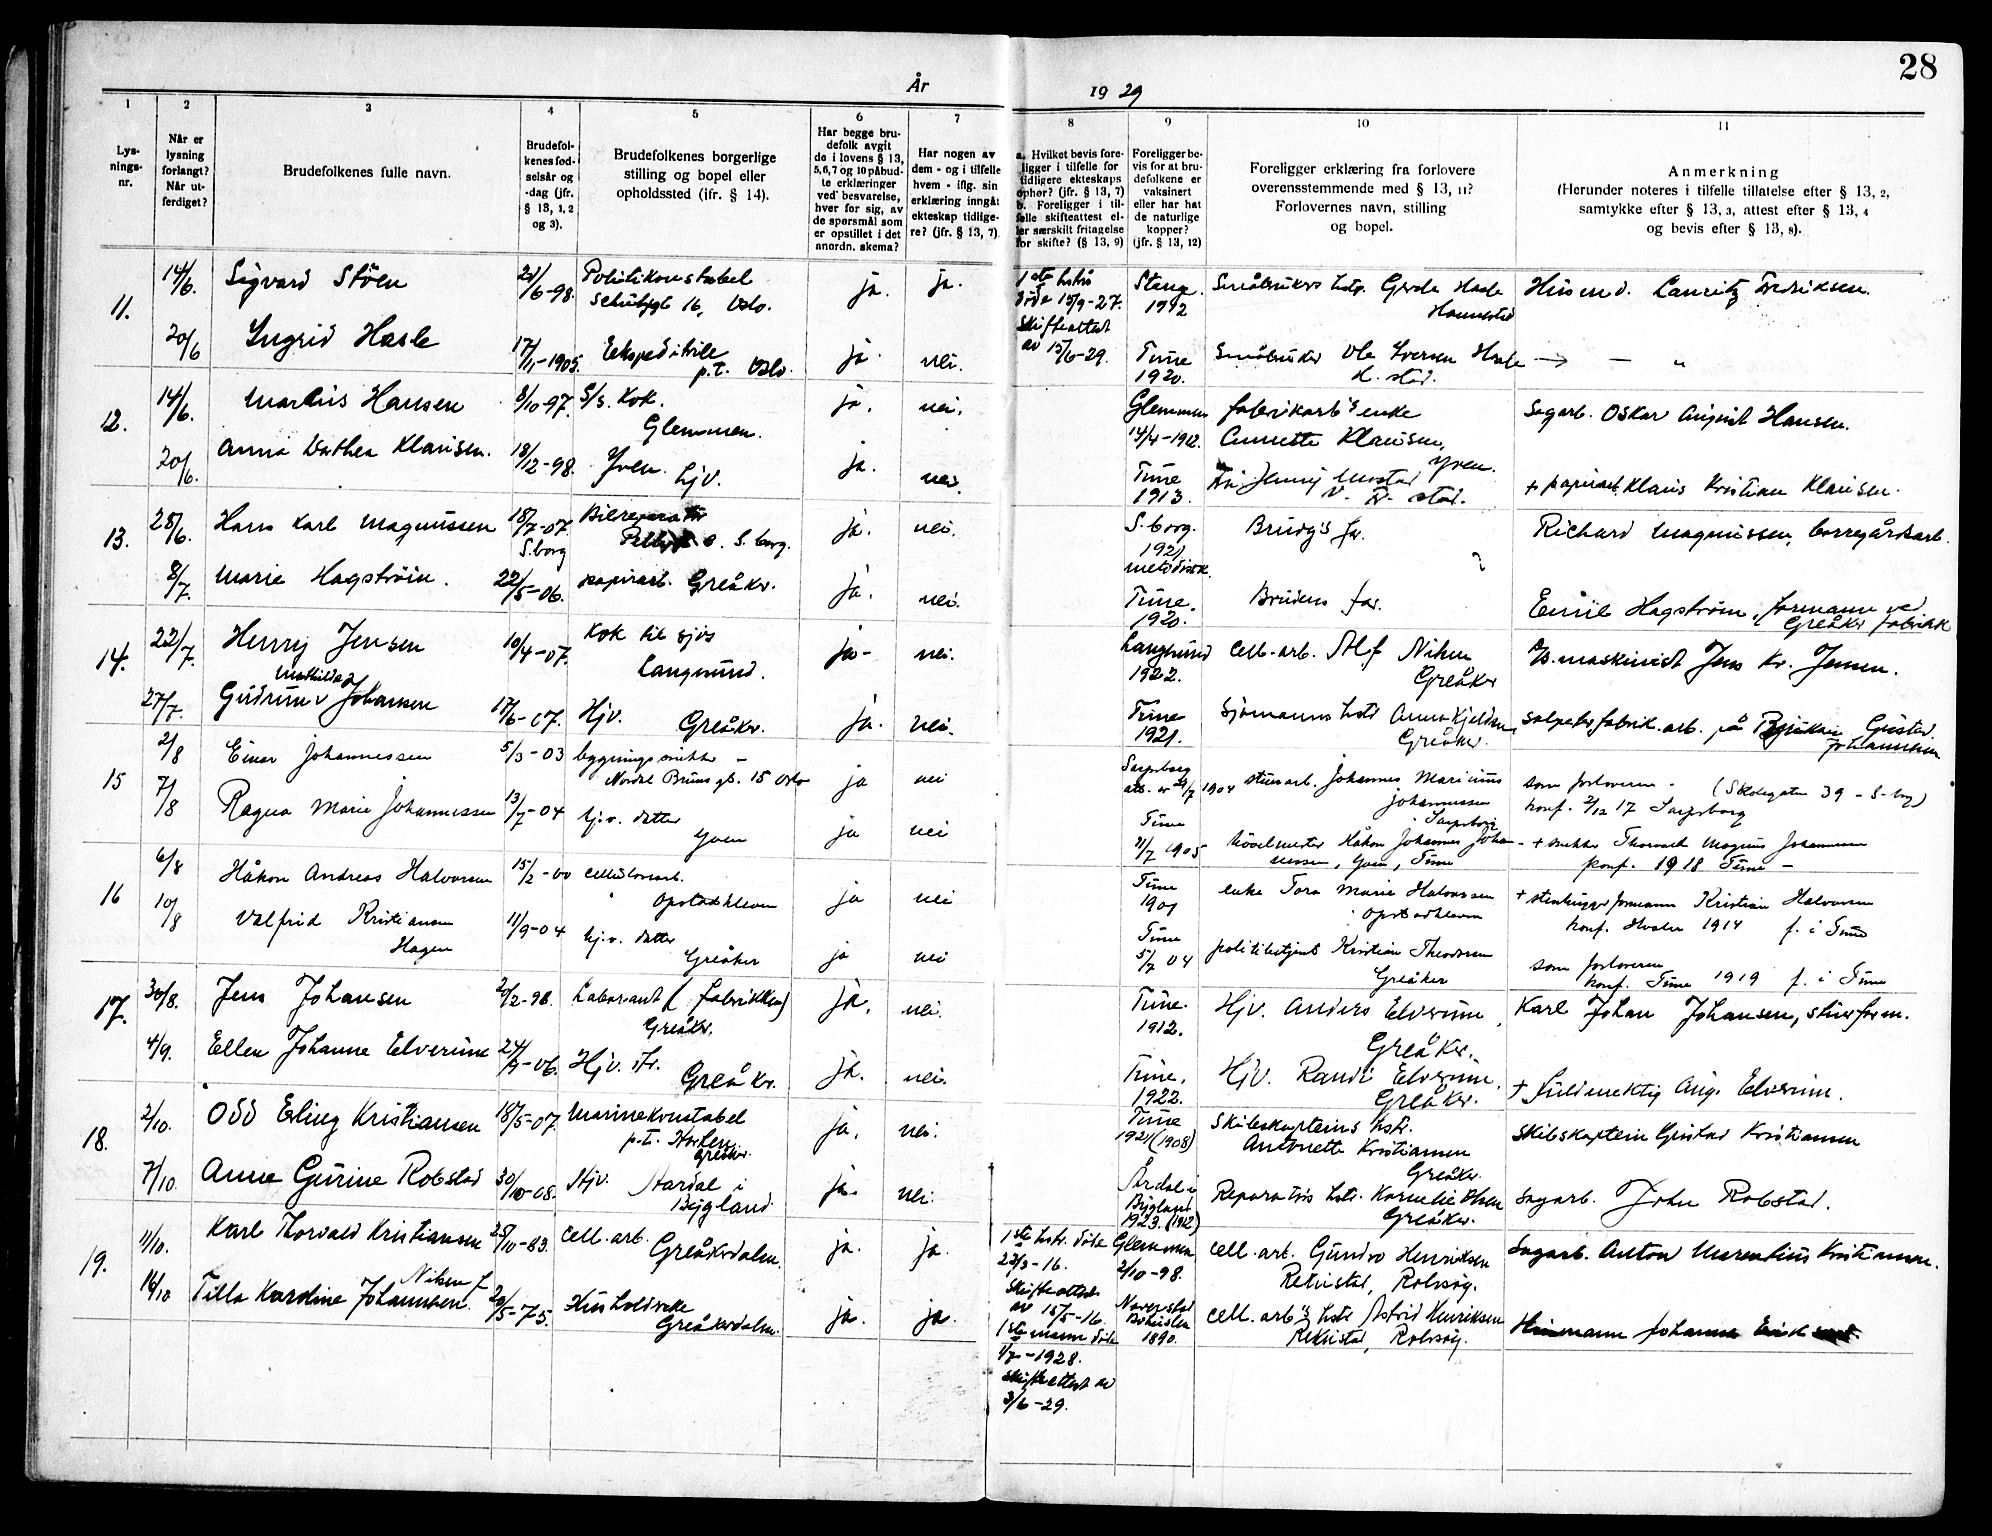 28
År 1929
1 2 3 4 5 6 7 8 9 10 11
Lys-
nings-
nr.
Når er
lysning
forlangt?
Når ut-
ferdiget?
Brudefolkenes fulle navn.
Brudefol-
kenes fød-
selsår og
-dag (jfr.
§ 13, 1, 2
og 3).
Brudefolkenes borgerlige
stilling og bopel eller
opholdssted (ifr. § 14).
Har begge bru-
defolk avgit
de i lovens § 13,
5,6,7 og 10 påbud-
te erklæringer
ved besvarelse,
hver for sig, av
de spørsmål som
er opstillet i det
anordn. skema?
Har nogen av
dem - og i tilfelle
hvem - iflg. sin
erklæring inngåt
ekteskap tidlige-
re? (jfr. § 13, 7).
a. Hvilket bevis fore-
ligger i tilfelle for
tidligere ekteskaps
ophør? (jfr. § 13, 7)
b. Foreligger i til-
felle skifteattest el-
ler særskilt fritagelse
for skifte? (§ 13, 9)
Foreligger be-
vis for at bru-
defolkene er
vaksinert
eller har hat
de naturlige
kopper?
(jfr. § 13, 12)
Foreligger erklæring fra forlovere
overensstemmende med § 13, 11?
Forlovernes navn, stilling
og bopel.
Anmerkning
(Herunder noteres i tilfelle tillatelse efter § 13, 2,
samtykke efter § 13, 3, attest efter § 13, 4
og bevis efter § 13, 8).
11. 14/6. Sigvard Stöen 21/6-98. Politikonstabel
Schubsgt 16, Oslo. ja. ja. 1ste hstr
döde 15/9-27.
Skifteattest
av 15/6-29. Stange
1912 Småbrukers hstr. Gerda Hasle
Hannestad Husmd. Lauritz Fredriksen.
20/6 Ingrid Hasle 17/11-1905. Ekspeditrise
p.t. Oslo. ja. nei. Tune
1920. Småbruker Ole Iversen Hasle
H. stad. — "
12. 14/6. Marius Hansen 8/10-97. S/s. Kok.
Glemmen. ja. nei. Glemmen
14/4-1912. fabrikarb's enke
Annette Klausen,
Yven. Sagarb. Oskar August Hansen.
20/6. Anna Dorthea Klausen. 18/12-98. Yven. Hjv. ja. nei. Tune
1913. Fru Jenny
+ papirarb. Klaus Kristian Klausen.
13. 28/6. Hans Karl Magnussen 18/7-07.
S.borg Bilreparatör
S. borg. ja. nei. S. borg.
1921
metodistk. Brudg's far. Richard Magnussen, borregårdsarb.
8/7. Marie Hagström. 22/5-06. papirarb. Greåker. ja. nei. Tune.
1920. Brudens far. Emil Hagström, formann ved
Greåker fabrikk
14. 22/7. Henry Jensen 10/4-07. Kok til sjös
Langesund. ja- nei. Langesund
1922. Cell-arb. Alf Nilsen
Greåker D/S. maskinist Jens Kr. Jensen.
27/7. Gudrun Mathilde Johansen 17/6-07. Hjv. Greåker. ja. nei. Tune
1921. Sjömanns hstr Anna Kjeldsen,
Greåker. Salpeterfabrik.arb. på Rjukan Gustav
Johannesen
15 2/8 Einar Johannessen 5/3-03 bygningssnikker -
Nordal Bruns gt. 15 Oslo ja nei Sarpsborg
att. av 29/7 1904 stuearb. Johannes Marinius
Johannessen
i Sarpsborg som forloveren. - (Skolegaten 39 - S-borg)
konf. 2/12 17 Sarpsborg
7/8 Ragna Marie Johannessen 13/7-04 hj.v. datter
Yven ja nei Tune
11/7 1905 hövelmester Håkon Johannes Johan-
nessen, Yven, Tune + snekker Thorvald Magnus Johannessen
konf. 1918 Tune -
16 6/8 Håkon Andreas Halvorsen 15/2-00 cellulosearb.
Opstadkleven ja nei Tune
1901 enke Tora Marie Halvorsen
Opstadkleven + stenhuggerformann Kristian Halvorsen
konf. Hvaler 1914 f. i Tune
10/8 Valfrid Kristiansen
Hagen 11/9-04 hj.v. datter
Greåker ja nei Tune
5/7 04 politibetjent Kristian Theodorsen
Greåker som forloveren
konf. Tune 1919 f. i Tune
17. 30/8. Jens Johansen 20/2-98. Laborant (fabrikken)
Greåker. ja. nei. Tune.
1912. Hjv. Anders Elverum,
Greåker. Karl Johan Johansen, stuerform.
4/9. Ellen Johanne Elverum 24/9-06. Hjv. dtr.
Greåker. ja. nei. Tune.
1922. Hjv. Randi Elverum,
Greåker. + Fuldmektig Aug. Elverum.
18. 2/10. Odd Erling Kristiansen 18/5-07. Marinekonstabel
p.t. Horten
Greåker. ja. nei. Tune
1921 (1908) Skibskapteins hstr.
Antonette Kristiansen
Greåker. Skibskaptein Gustav Kristiansen
7/10. Anne Gurine Robstad 30/10-08. Hjv. Aardal i
Bygland. ja. nei. Årdal i
Bygland
1923. (1912) Reparatörs hstr. Kornelie Olsen
Greåker. Sagarb. John Robstad.
19. 11/10. Karl Thorvald Kristiansen 25/10-83. Cell.arb.
Greåkerdalen. ja. ja. 1ste hstr. döde
22/3-16.
Skifteattest
av 15/5-16. Glemmen
2/10-98. Cell. arb. Gundro Henriksen
Rekustad, Rolvsöy. Sagarb. Anton Marentius Kristiansen.
14/10 Tilla Karoline Johannesen. Nilsen f 29/5-75. Husholderske
Greåkerdalen. ja. ja. 1ste mann döde
1/7-1928.
Skifteattest av
3/6-29. Naverstad
Bohuslen
1890. cell. arb's hstr Astrid Henriksen
Rekustad, Rolvsöy. Husmann Johannes